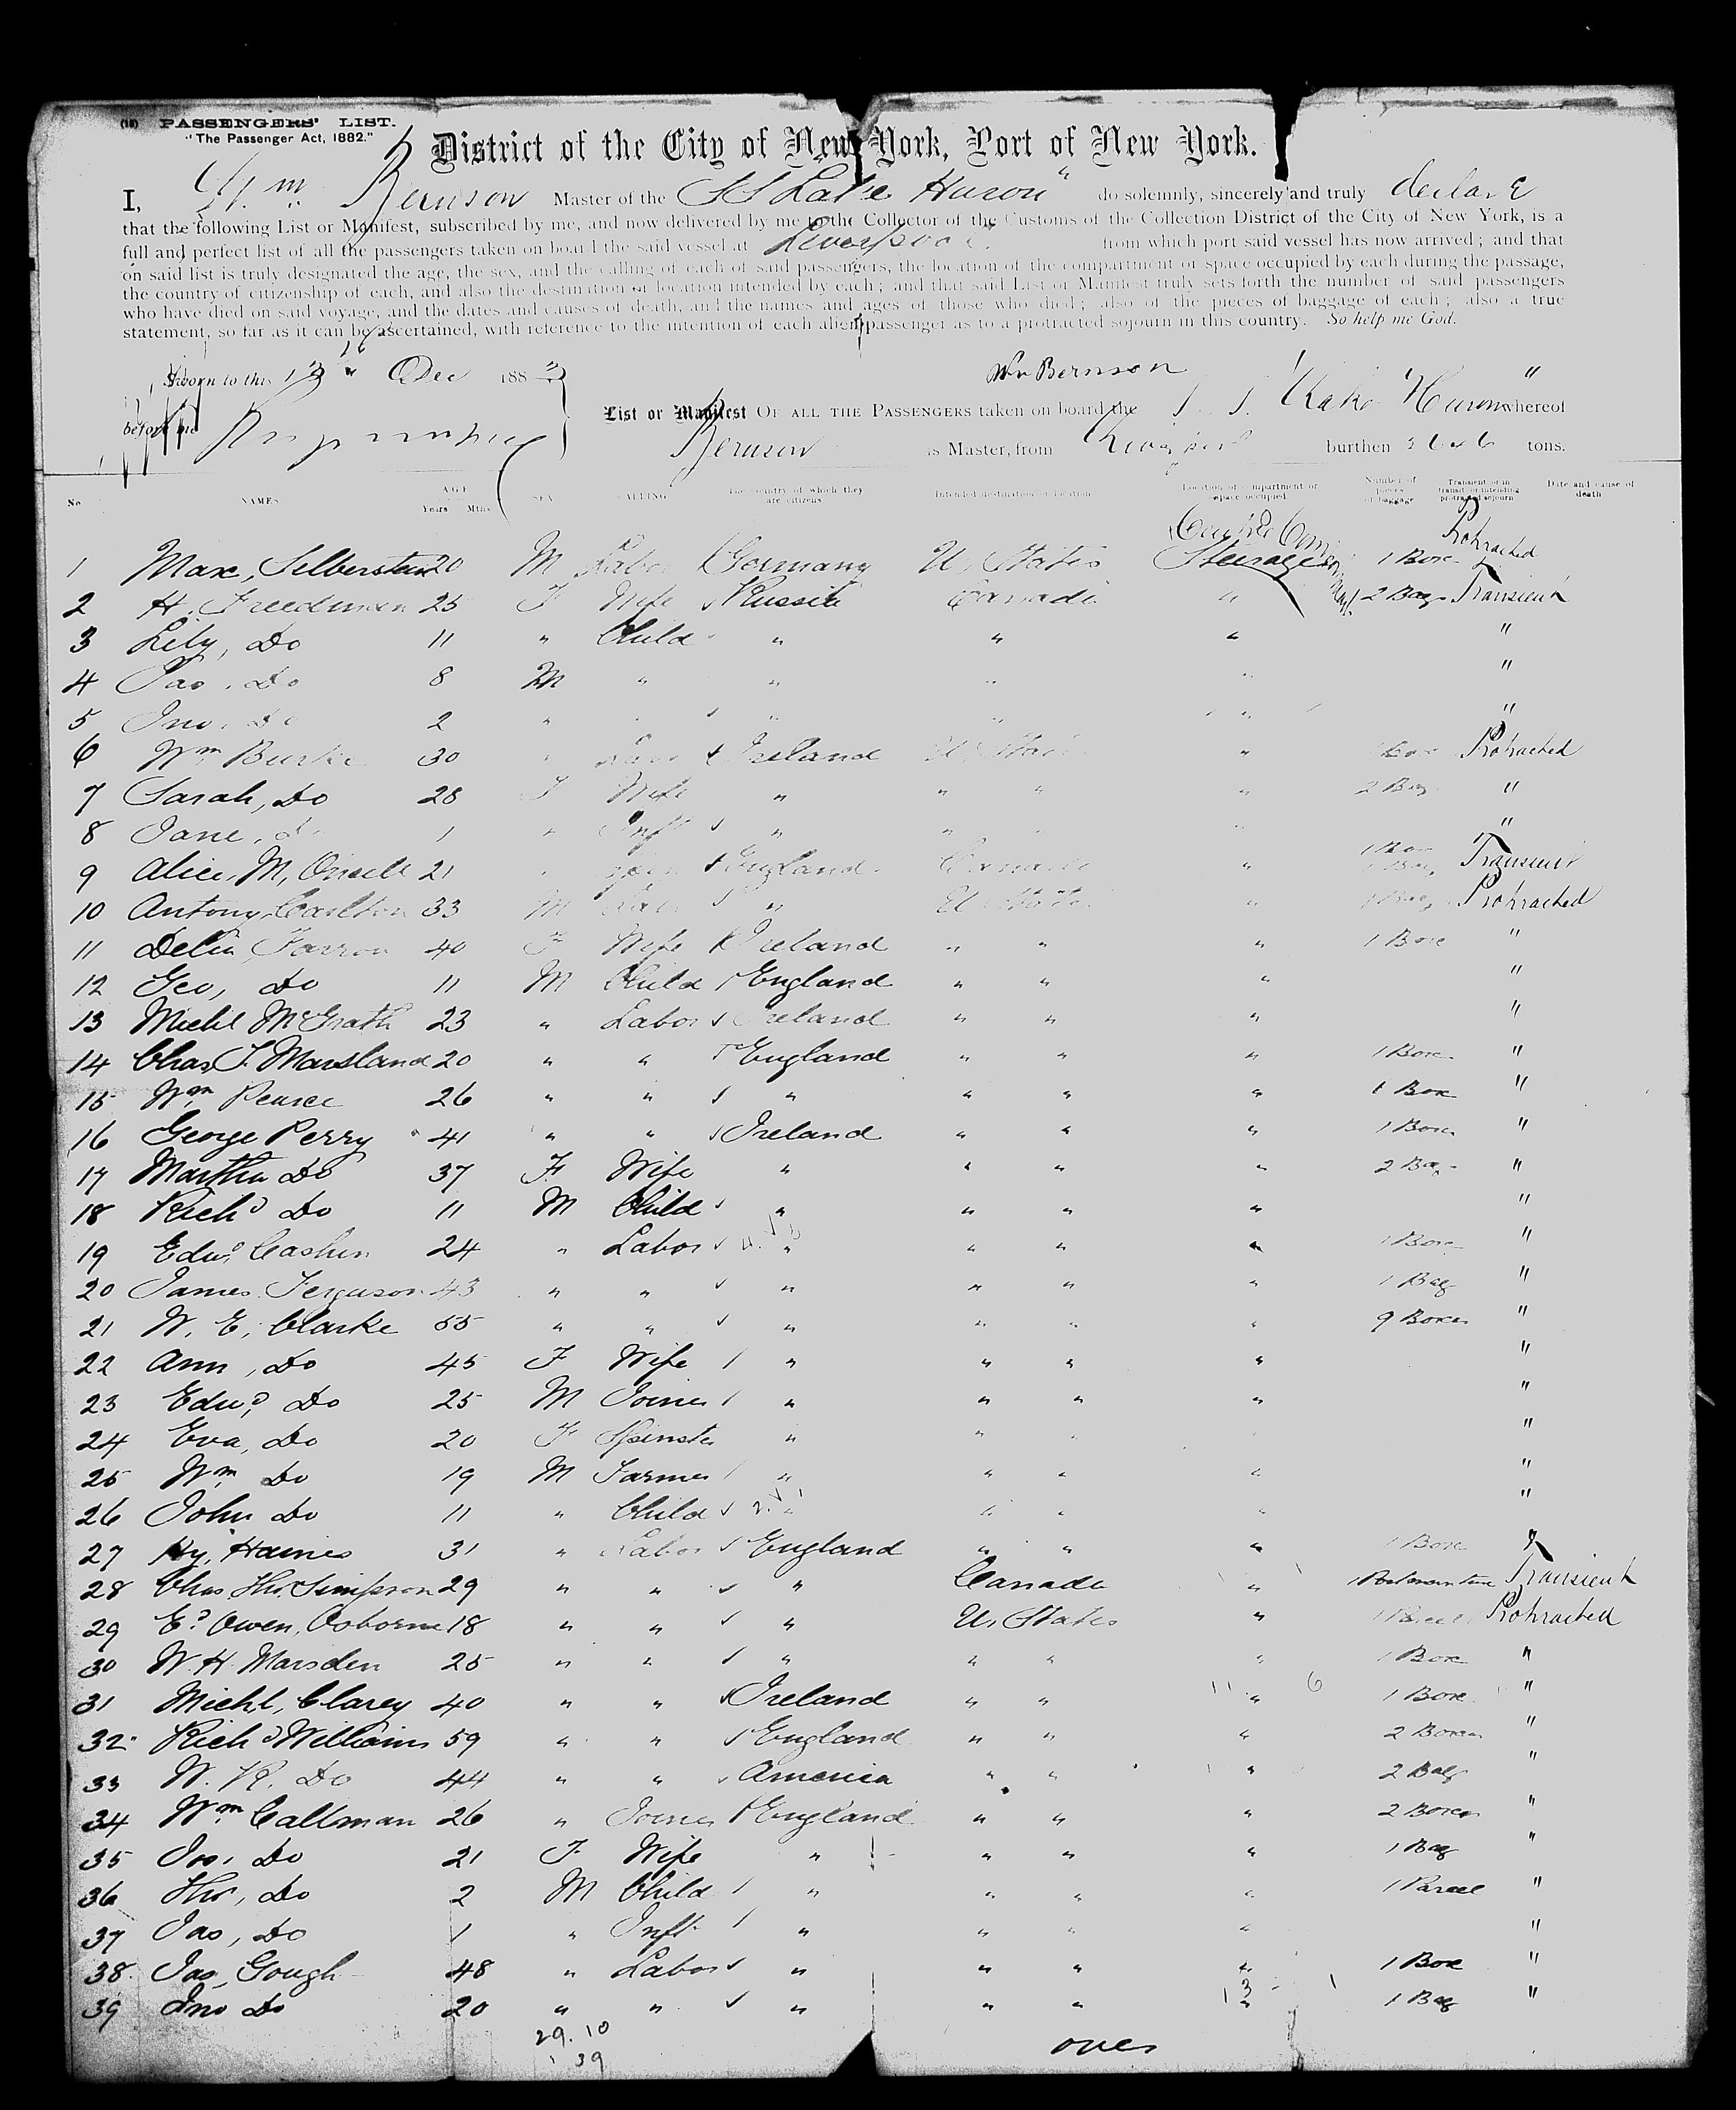 (15) PASSENGERS' LIST.
"The Passenger Act, 1882."
District of the City of New York, Port of New York.
I, Wm. Bernson Master of the SS Lake Huron" do solemnly, sincerely and truly declare
that the following List or Manifest, subscribed by me, and now delivered by me to the Collector of the Customs of the Collection District of the City of New York, is a
full and perfect list of all the passengers taken on board the said vessel at Liverpool from which port said vessel has now arrived; and that
on said list is truly designated the age, the sex, and the calling of each of said passengers, the location of the compartment or space occupied by each during the passage,
the country of citizenship of each, and also the destination or location intended by each; and that said List or Manifest truly sets forth the number of said passengers
who have died on said voyage, and the dates and causes of death, and the names and ages of those who died; also of the pieces of baggage of each; also a true
statement, so far as it can be ascertained, with reference to the intention of each alien passenger as to a protracted sojourn in this country. So help me God.
Sworn to this 13 " Dec 188
Wm Bernson
before me
List or Manifest OF ALL THE PASSENGERS taken on board the S. S. Lake Huron" whereof
Bernson is Master, from Liverpool burthen tons.
No NAMES AGE Years Mths SEX CALLING The country of which they are citizens Intended destination or location Location of compartment or space occupied Number of pieces of baggage Transient or in transit or intending protracted sojourn Date and cause of death
1 Max, Silberstein 20 M Labor Germany U. States Steerage 1 Box Protracted
2 H. Freedman 25 F Wife Russia Canada " 2 Bags Transient
3 Lily, Do 11 " Child " " " "
4 Jas, Do 8 M " " " " "
5 Jno, Do 2 " " " " " "
6 Wm Burke 30 " Labor Ireland U. States " 1 Box Protracted
7 Sarah, Do 28 F Wife " " " " 2 Bag "
8 Jane, Do 1 " Inft " " " "
9 Alice, M, 21 " England Canada " 1 Box Transient
10 Antony Carlton 33 M Labor " U. States " 1 Bag Protracted
11 Delia Farron 40 F Wife Ireland " " " 1 Box "
12 Geo, Do 11 M Child England " " " "
13 Michl McGrath 23 " Labor Ireland " " " "
14 Chas J. Marsland 20 " " England " " " 1 Box "
15 Wm Pearce 26 " " " " " " 1 Box "
16 George Perry 41 " " Ireland " " " 1 Box "
17 Martha Do 37 F Wife " " " " 2 Bag "
18 Richd Do 11 M Child " " " " "
19 Edwd Cashin 24 " Labor " " " " 1 Box "
20 James Ferguson 43 " " " " " " 1 Bag "
21 W. E. Clarke 55 " " " " " " 9 Boxes "
22 Ann, Do 45 F Wife " " " " "
23 Edwd, Do 25 M Joiner " " " " "
24 Eva, Do 20 F Spinster " " " "
25 Wm Do 19 M Farmer " " " " "
26 John Do 11 " Child " " " " "
27 Hy, Haines 31 " Labor England " " " 1 Box "
28 Chas Thos. Simpson 29 " " " Canada " 1 Portmanteau Transient
29 Ed Owen, Osborne 18 " " " U. States " 1 Parcel Protracted
30 W. H. Marsden 25 " " " " " " 1 Box "
31 Michl, Clarey 40 " " Ireland " " 11 " 6 1 Box "
32 Richd Williams 59 " " England " " " 2 Boxes "
33 W. R. Do 44 " " America " " " 2 Bags "
34 Wm Callman 26 " Joiner England " " " 2 Boxes "
35 Jos, Do 21 F Wife " " " " 1 Bag "
36 Thos, Do 2 M Child " " " " 1 Parcel "
37 Jas, Do 1 " Inft " " " " "
38 Jas, Gough 48 " Labor " " " " 1 Box "
39 Jno Do 20 " " " " " 13 " 1 Bag "
29. 10
39
over